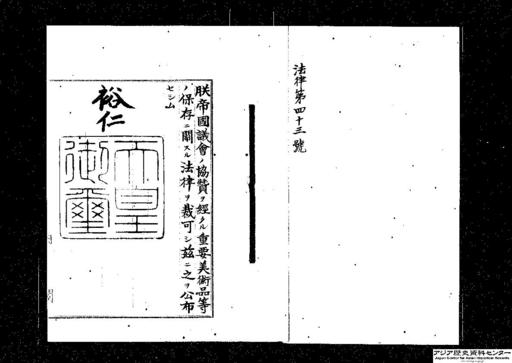 法律第四十三號
朕帝國議會ノ協贊ヲ經タル重要美術品等
ノ保存ニ關スル法律ヲ裁可シ茲ニ之ヲ公布
セシム
裕仁
天皇
御璽
アジア歴史資料センター
Japan Center for Asian Historical Records